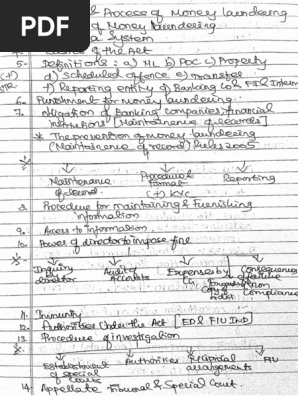 PDF
& Process of Money laundering
of Money laundering
a System
of the Act
5. Definitions: a) ML b) POC c) Property
(+) d) Scheduled offence e) Transfer
f) Reporting entity g) Banking Co h) FI
6. Punishment for Money laundering
7. Obligation of Banking companies, financial
institutions [Maintainence of records]
* The prevention of Money laundering
(Maintainence of record) Rules 2005
Maintenance
of record
Procedure &
Format
Reporting
(+) KYC
8. Procedure for maintaining & Furnishing
information
9. Access to Information
10. Power of director to impose fine
Inquiry
director
Audit of
Accounts
Expenses by
CG
Consequences
of
non
Compliance
11. Immunity
12. Authorities Under the Act [ED & FIU IND]
13. Procedure of investigation
Establishment
of special
Courts
Authorities
Reciprocal
arrangements
FIU
14. Appellate Tribunal & Special Court.